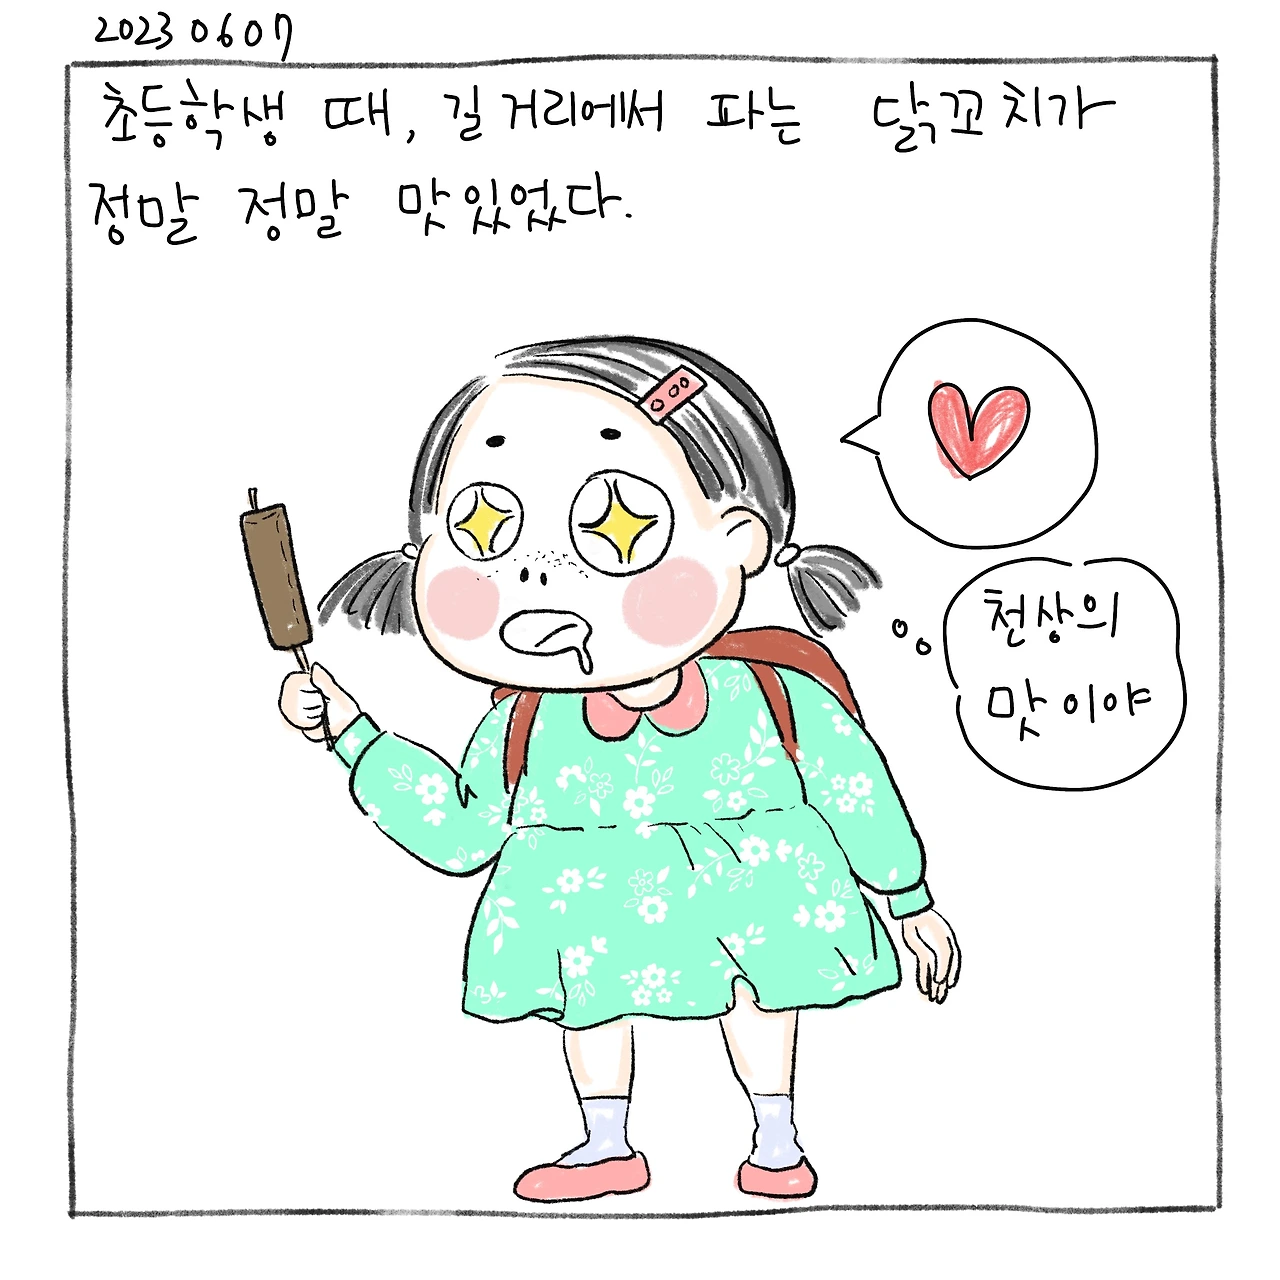 2023 06 07
초등학생 때, 길거리에서 파는 닭꼬치가
정말 정말 맛있었다.
천상의
맛이야